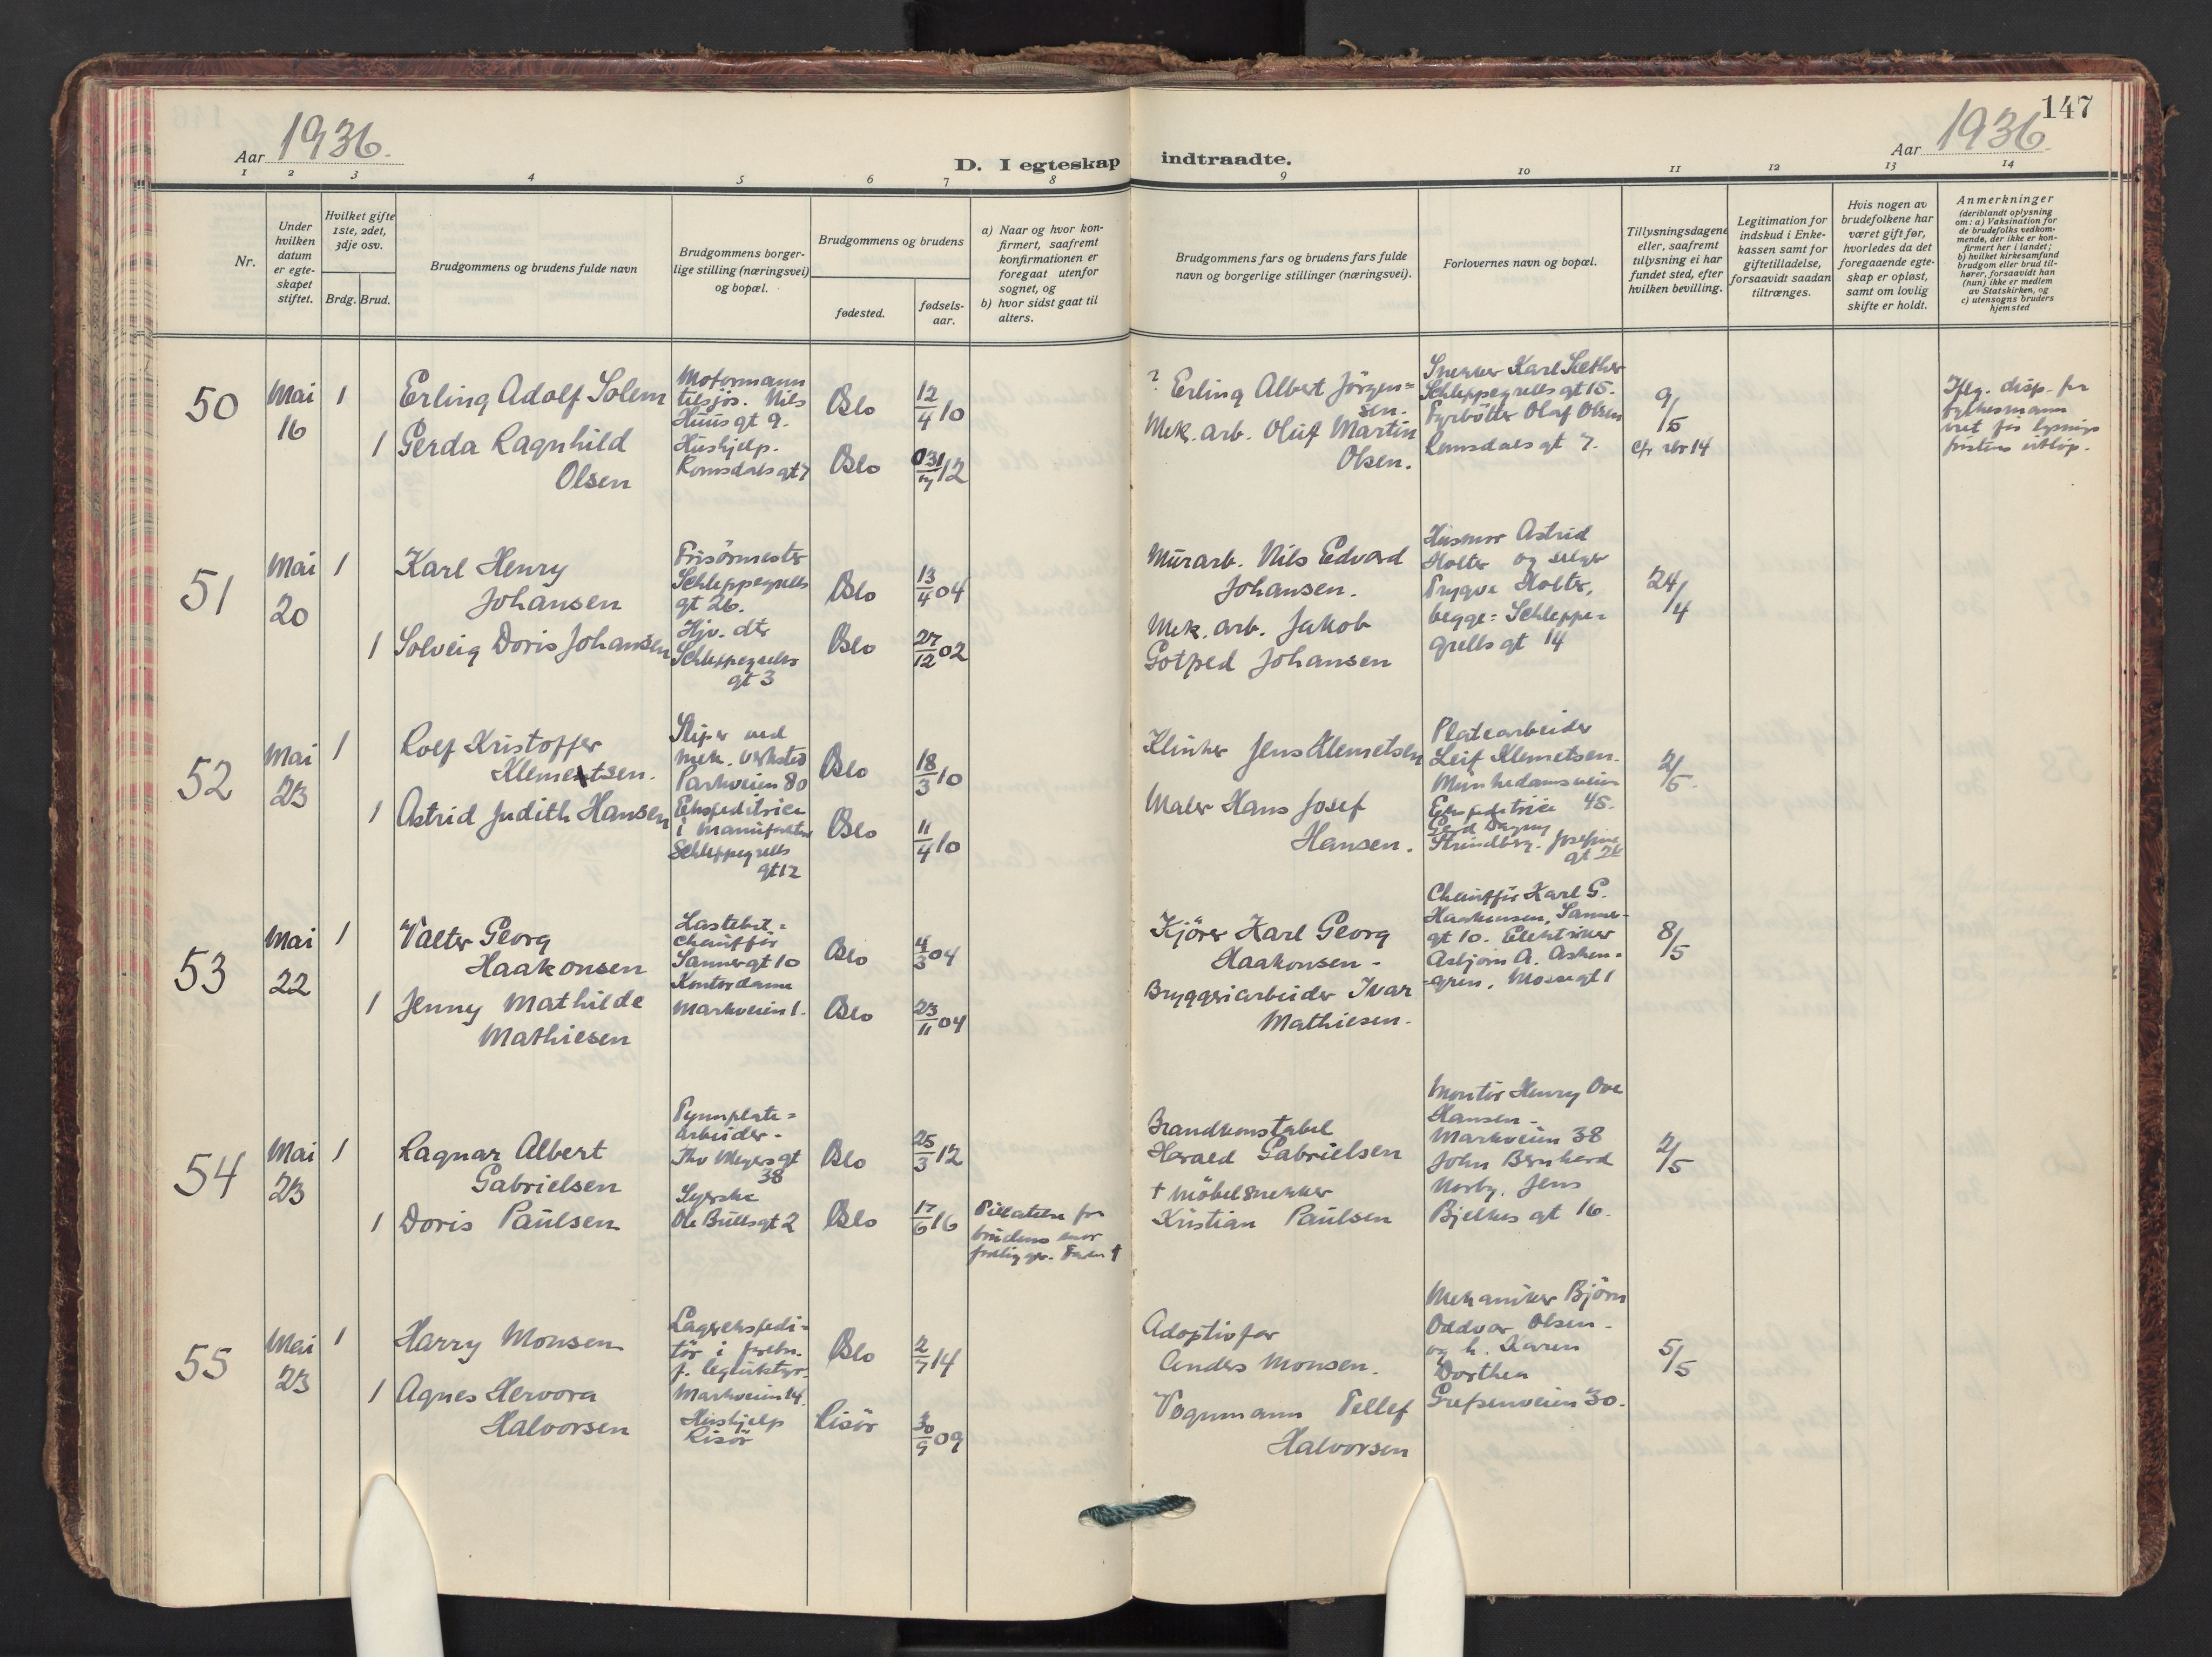 147
Aar 1936.
Aar 1936.
D. I egteskap indtraadte.
1 2 3 4 5 6 7 8 9 10 11 12 13 14
Nr.
Under
hvilken
datum
er egte-
skapet
stiftet.
Hvilket gifte
1ste, 2det,
3dje osv.
Brdg. Brud.
Brudgommens og brudens fulde navn
Brudgommens borger-
lige stilling (næringsvei)
og bopæl.
Brudgommens og brudens
fødested.
fødsels-
aar.
a) Naar og hvor kon-
firmert, saafremt
konfirmationen er
foregaat utenfor
sognet, og
b) hvor sidst gaat til
alters.
Brudgommens fars og brudens fars fulde
navn og borgerlige stillinger (næringsvei).
Forlovernes navn og bopæl.
Tillysningsdagene
eller, saafremt
tillysning ei har
fundet sted, efter
hvilken bevilling.
Legitimation for
indskud i Enke-
kassen samt for
giftetilladelse,
forsaavidt saadan
tiltrænges.
Hvis nogen av
brudefolkene har
været gift før,
hvorledes da det
foregaaende egte-
skap er opløst,
samt om lovlig
skifte er holdt.
Anmerkninger
(deriblandt oplysning
om: a) Vaksination for
de brudefolks vedkom-
mende, der ikke er kon-
firmert her i landet;
b) hvilket kirkesamfund
brudgom eller brud til-
hører, forsaavidt han
(hun) ikke er medlem
av Statskirken, og
c) utensogns bruders
hjemsted
50
Mai
16
1
Erling Adolf Solem
Motormann
Nils
Huus gt 9.
Oslo
12/4 10
1
Gerda Ragnhild
Olsen
Hushjelp.
Romsdals gt 7
Oslo
12
? Erling Albert Jörgen=
sen.
Mek. arb. Oluf Martin
Olsen.
Snekker Karl Sæther
Schleppegrells gt 15.
Fyrbøter Olaf Olsen
Romsdals gt 7.
9/5
cfr rbr 14
Iflg. disp. fra
fylkesmann
viet før lysnings
fristens utløp.
51
Mai
20
1
Karl Henry
Johansen
Frisörmester
Schleppegrells
gt 26.
Oslo
13/4 04
1
Solveig Doris Johansen
Hjv. dtr
Schleppegrells
gt 3
Oslo
27/12 02
Murarb. Nils Edvard
Johansen.
Mek. arb. Jakob
Gotfred Johansen
Husmor Astrid
Holter og selger
Trygve Holter,
begge: Schleppe=
grells gt 14
24/4
52
Mai
23
1
Rolf Kristoffer
Klemetsen.
Sliper ved
mek. verksted
Parkveien 80
Oslo
18/3 10
1
Astrid Judith Hansen
Ekspeditrice
i manufaktur
Schleppegrells
gt 12
Oslo
11/4 10
Klinker Jens Klemetsen
Maler Hans Josef
Hansen.
Platearbeider
Leif Klemetsen.
Munkedamsveien
45.
Ekspeditrice
Gerd Dagny
Strindberg. Josefines
gt 24
2/5.
53
Mai
22
1
Valter Georg
Haakonsen
Lastebil=
chauffør
Sannergt 10
Oslo
4/3 04
1
Jenny Mathilde
Mathiesen
Kontordame
Markveien 1.
Oslo
23/11 04
Kjörer Karl Georg
Haakonsen -
Bryggeriarbeider Ivar
Mathiesen.
Chauffør Karl G.
Haakonsen, Sanner-
gt 10. Elektriker
Asbjörn A. Asken=
=gren, Mossegt 1
8/5
54
Mai
23
1
Ragnar Albert
Gabrielsen
Tynnplate=
arbeider.
Thv Meyers gt
38
Oslo
25/3 12
1
Doris Paulsen
Syerske
Ole Bulls gt 2
Oslo
17/6 16
Tillatelse fra
brudens mor
foreligger. Faren †
Brandkonstabel
Harald Gabrielsen
† Möbelsnekker
Kristian Paulsen
Montör Henry Ove
Hansen -
Markveien 38
John Bernhard
Norby, Jens
Bjelkes gt 16.
2/5
55
Mai
23
1
Harry Monsen
Lagerekspedi=
tör i forretn.
Markveien 14.
Oslo
2/7 14
1
Agnes Hervora
Halvorsen
Hushjelp
Risör
Risör
30/9 09
Adoptivfar
Anders Monsen.
Vognmann Tellef
Halvorsen
Mekaniker Björn
Oddvar Olsen -
og h. Karen
Dorthea
Grefsenveien 30.
5/5